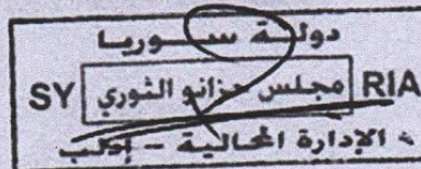 دولـة سـوريـا
SY مجلس حزانو الثوري RIA
الإدارة المحالية - إدلب